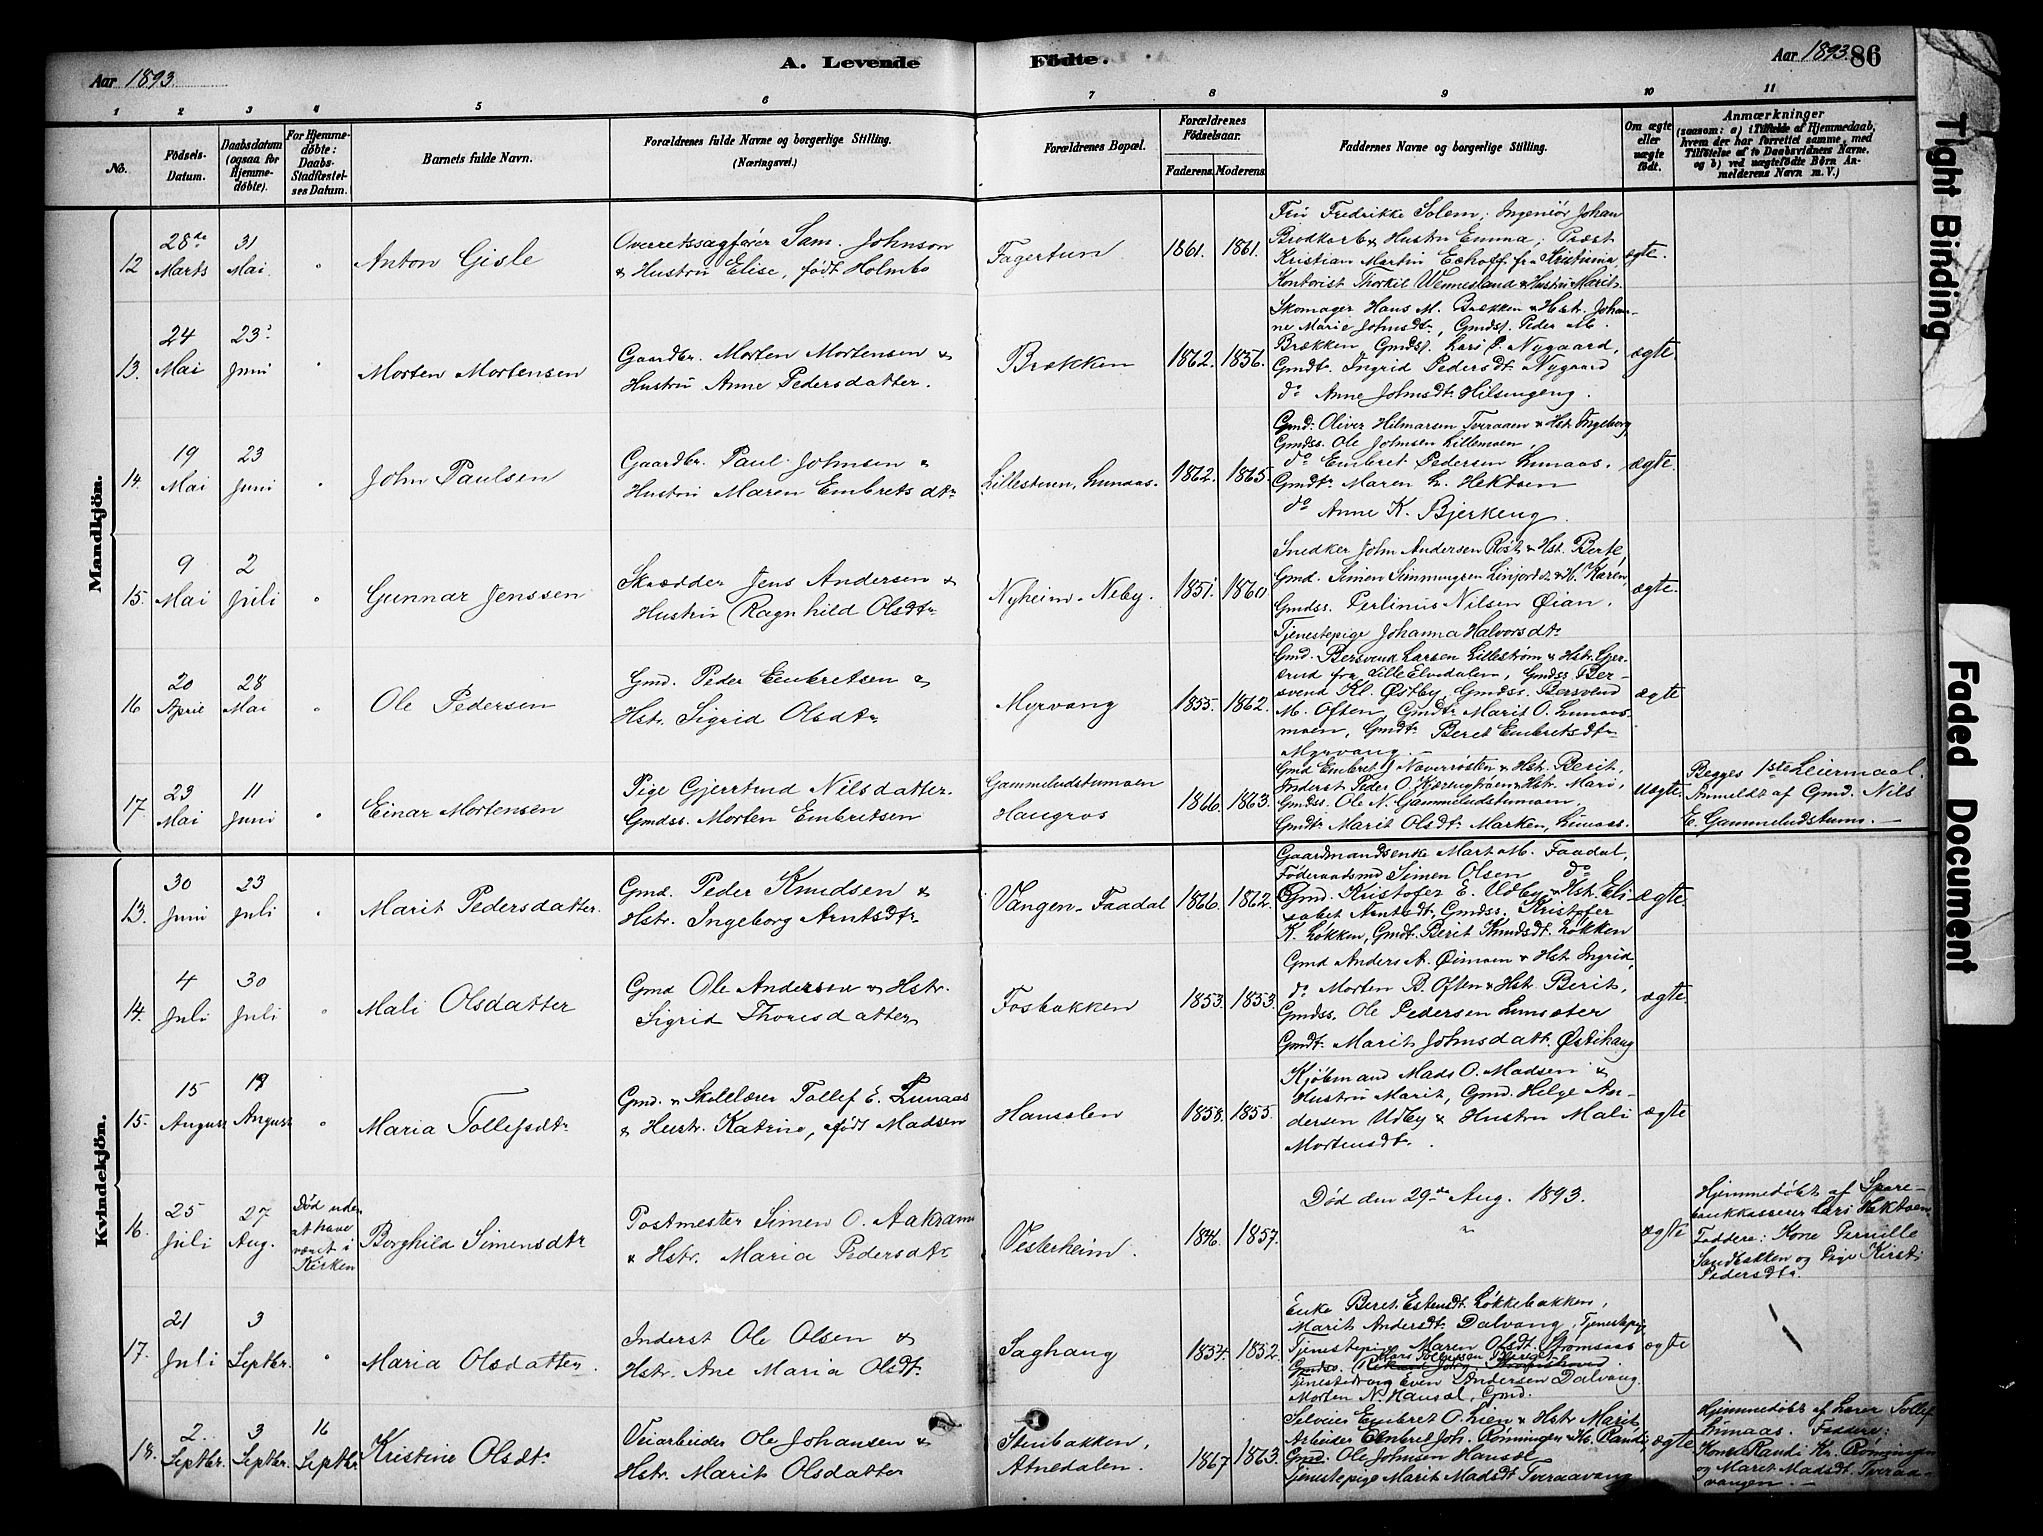 Aar 1893.
A. Levende Födte.
Aar 1893. 86
1 2 3 4 5 6 7 8 9 10 11
No.
Födsels-Datum.
Daabsdatum (ogsaa for Hjemmedöbte).
For Hjemmedöbte: Daabs-Stadfæstelses Datum.
Barnets fulde Navn.
Forældrenes fulde Navne og borgerlige Stilling.
(Næringsvei.)
Forældrenes Bopæl.
Forældrenes Födselsaar.
Faderens. Moderens.
Faddernes Navne og borgerlige Stilling.
Om ægte eller uægte födt.
Anmærkninger
(saasom: a) i Tilfælde af Hjemmedaab, hvem der har forrettet samme, med Tilföielse af to Daabsvidners Navne, og b) ved uægtefödte Börn Anmelderens Navn m. V.)
Mandkjön.
12 28de Marts 31 Mai " Anton Gisle
Overretssagfører Sam. Johnson
& Hustru Elise, født Holmbo
Fagertun 1861. 1861.
Fru Fredrikke Solem, Ingeniør Johan
Brodkorb & Hustru Emma; Præst
Kristian Martin Eckhoff fra Kristiania
Kontorist Thorkil Wennesland & Hustru Marit.
ægte.
13. 24 Mai 23 Juni " Morten Mortensen
Gaardbr. Morten Mortensen &
Hustru Anne Pedersdatter.
Brækken 1862. 1856.
Skomager Hans M. Brækken & Hstr. Johan-
ne Marie Johnsdtr, Gmdss. Peder M.
Brækken, Gmdss. Lars P. Nygaard,
Gmdtr. Ingrid Pedersdtr Nygaard
do Anne Johnsdtr Hilsengeng.
ægte
14. 19 Mai 23 Juni " John Paulsen
Gaardbr. Paul Johnsen &
Hustru Maren Embretsdtr
Lillestuen, Lunaas. 1862. 1865.
Gmd. Oliver Hilmarsen Tveraaen & Hst Ingeborg,
Gmdss. Ole Johnsen Lillemoen,
do Embret Pedersen Lunaas.
Gmdtr Maren L. Hektoen
do Anne K. Bjerkeng.
ægte.
15. 9 Mai 2 Juli " Gunnar Jenssen
Skrædder Jens Andersen &
Hustru Ragnhild Olsdtr
Nyheim, Neby. 1851. 1860.
Snedker John Andersen Røst & Hst. Berte,
Gmd. Simen Simmingsen Linjordet & H. Karen,
Gmdss. Perlinus Nilsen Øian,
Tjenestepige Johanna Halvorsdtr
ægte.
16 20 April 28 Mai " Ole Pedersen
Gmd. Peder Embretsen &
Hstr. Sigrid Olsdtr
Myrvang 1855. 1862.
Gmd. Bersvend Larsen Lillestrøm & Hstr. Gjer-
trud fra Lille Elvedalen, Gmdss. Ber-
svend Kl. Østby, Gmdss. Bersvend
M. Often, Gmdtr Marit O. Lunaas-
moen, Gmdtr. Beret Embretsdtr
Myrvang.
ægte
17. 23 Mai 11 Juni " Einar Mortensen
Pige Gjertrud Nilsdatter.
Gmdss. Morten Embretsen
Gammeludstumoen
Haugros
1866. 1863.
Gmd Embret J Næverrosten & Hst. Berit,
Inderst Peder O. & Hst. Mari,
Gmdss. Ole N. Gammeludstumoen,
Gmdtr Marit Olsdtr. Marken, Lunaas.
uægte.
Begges 1ste Leiermaal.
Anmeldt af Gmd. Nils
E. Gammeludstumo. —
Kvindekjön.
13. 30 Juni 23 Juli " Marit Pedersdatter.
Gmd. Peder Knudsen &
Hstr. Ingeborg Arntsdtr
Vangen, Faadal 1866. 1862.
Gaardmandsenke Mart M. Faadal,
Føderaadsmd Simen Olsen do
Gmd. Kristofer E. Udby & Hst. Eli-
sabet Arntsdtr. Gmdss. Kristofer
K. Løkken, Gmdt. Berit Knudsdt. Løkken
ægte.
14. 4 Juli 30 Juli " Mali Olsdatter
Gmd Ole Andersen & Hstr.
Sigrid Thoresdatter
Fosbakken 1853. 1853.
Gmd Anders A. Øimoen & Hst Ingrid,
do Morten B. Often & Hst Berit,
Gmdss. Ole Pedersen Lunsæter
Gmdt. Marit Johnsdatt. Østihaug
ægte.
15. 15 August 19 August " Maria Tollefsdtr
Gmd. & Skolelærer Tollef E. Lunaas
& Hustr. Katrine, født Madsen
Hauselen 1858. 1855.
Kjøbmand Mads O. Madsen &
Hustru Marit, Gmd. Helge An-
dersen Udby & Hustru Mali
Mortensdtr.
ægte
16. 25 Juli 27 Aug. Død uden at have været i Kirken Borghild Simensdtr
Postmester Simen O. Aakrann
& Hstr. Maria Pedersdtr
Vesterheim. 1846. 1857.
Død den 29de Aug. 1893.
"
ægte
Hjemmedøbt af Spare-
bankkasserer Lars Hektoen
Faddere: Kone Pernille
Sandbakken og Pige Kirsti
Pedersdtr.
17. 21 Juli 3 Septbr. " Maria Olsdatter.
Inderst Ole Olsen &
Hstr. Ane Maria Olsdt.
Saghaug 1854. 1852.
Enke Beret Estensdt. Løkkebakken,
Marit Andersdt. Dalvang, Tjenestepige
Tjenestepige Maren Olsdt. Strømsaas
Gmdss.
Tjenestedreng Even Andersen Dalvang.
Morten N. Hausal, Gmd.
ægte
18. 2 Septbr. 3 Septbr. 16 Septbr. Kristine Olsdt.
Veiarbeider Ole Johansen &
Hstr. Marit Olsdatter
Stenbakken,
Atnedalen.
1867 1863.
Selveier Embret O. Lien & Hstr Marit,
Arbeider Embret Joh. Rønningen & H. Randi,
Gmd. Ole Johnsen Hausal
Tjenestepige Marit Madsdt Tveraavang
ægte
Hjemmedøbt af Lærer Tollef
Lunaas. Faddere:
Kone Randi Kr. Rønningen
og Marit Madsdt. Tveraa-
vangen. —
Tight Binding
Faded Document